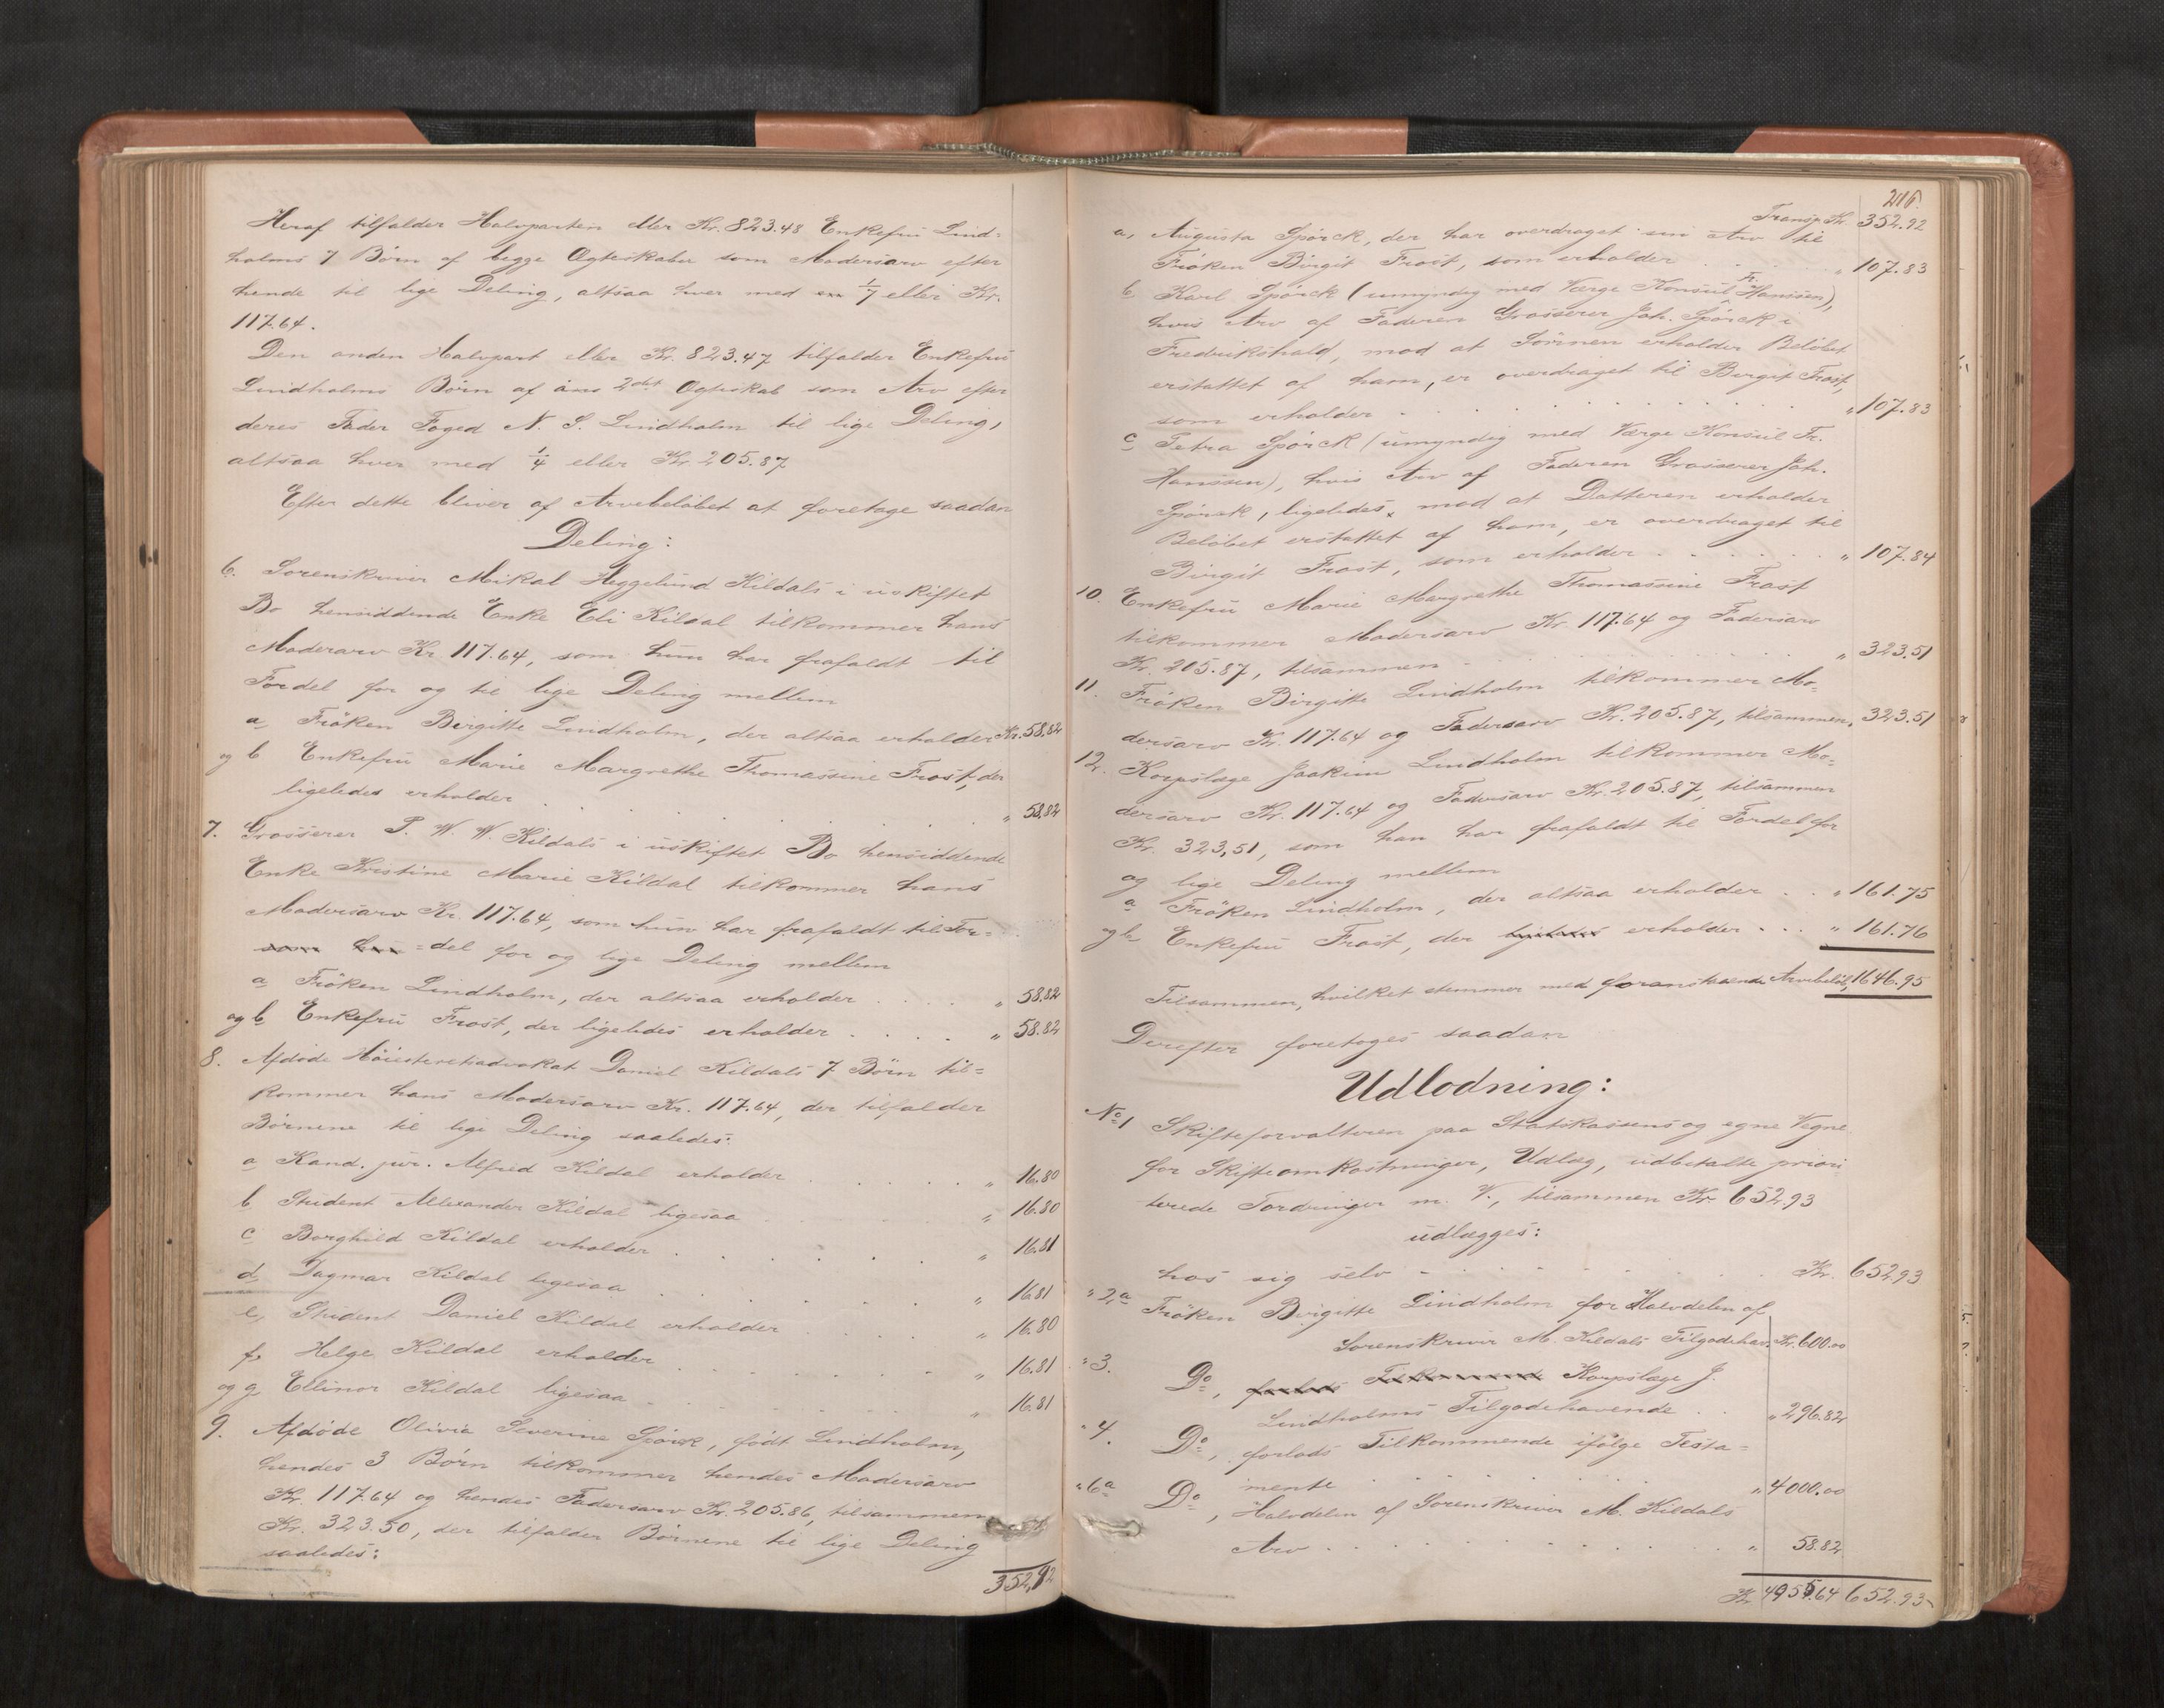 Heraf tilfalder Halvparten eller Kr. 823.48 Enkefru Lind-
holms 7 Børn af begge Ægteskaber som Mødrearv efter
hende til lige Deling, altsaa hver med 1/7 eller Kr.
117.64.
Den anden Halvpart eller Kr. 823.47 tilfalder Enkefru
Lindholms Børn af 2det Ægteskab som Arv efter
deres Fader Foged N. S. Lindholm til lige Deling,
altsaa hver med 1/4 eller Kr 205.87
Efter dette bliver af Arvebeløbet at foretage saadan
Deling:
6. Sorenskriver Mikal Heggelund Kildals i uskiftet
Bo hensiddende Enke Eli Kildal tilkommer hans
Moderarv Kr. 117.64, som hun har frafaldt til
Fordel for og til lige Deling mellem
a Frøken Birgitte Lindholm, der altsaa erholder Kr. 58.82
og b Enkefru Marie Margrethe Thomassine Frost, der
ligeledes erholder . . . . . . . „ 58.82
7. Grosserer P. W. W. Kildals i uskiftet Bo hensiddende
Enke Kristine Marie Kildal tilkommer hans
Modersarv Kr. 117.64, som hun har frafaldt til For-
-del for og lige Deling mellem
a Frøken Lindholm, der altsaa erholder . . . . „ 58.82
og b Enkefru Frost, der ligeledes erholder . . . . „ 58.82
8. Afdøde Høiesteretsadvokat Daniel Kildals 7 Børn til-
kommer hans Modersarv Kr. 117.64, der tilfalder
Børnene til lige Deling saaledes:
a Kand. jur. Alfred Kildal erholder . . . . . „ 16.80
b Student Alexander Kildal ligesaa . . . . „ 16.80
c Borghild Kildal erholder . . . . . . „ 16.81
d Dagmar Kildal ligesaa . . . . . . „ 16.81
e, Student Daniel Kildal erholder . . . . „ 16.80
f, Helge Kildal erholder . . . . . . „ 16.81
og g Ellinor Kildal ligesaa . . . . . „ 16.81
9. Afdøde Olivia Severine Spørck, født Lindholm,
hendes 3 Børn tilkommer hendes Modersarv
Kr. 117.64 og hendes Fadersarv Kr. 205.86, tilsammen
Kr. 323.50, der tilfalder Børnene til lige Deling
saaledes:
352,92
216.
Transp. Kr. 352.92
a, Augusta Spørck, der har overdraget sin Arv til
Frøken Birgit Frost, som erholder . . . . „ 107.83
b Karl Spørck (umyndig med Værge Konsul Fr. Hanssen),
hvis Arv af Faderen Grosserer Joh. Spørck i
Fredrikshald, mod at Sønnen erholder Beløbet
erstattet af ham, er overdraget til Birgit Frost,
som erholder . . . . . . . . . „ 107.83
c Petra Spørck (umyndig med Værge Konsul Fr.
Hanssen), hvis Arv af Faderen Grosserer Joh.
Spørck, ligeledes, mod at Datteren erholder
Beløbet erstattet af ham, er overdraget til
Birgit Frost, som erholder . . . . . . „ 107.84
10. Enkefru Marie Margrethe Thomassine Frost
tilkommer Modersarv Kr. 117.64 og Fadersarv
Kr. 205.87, tilsammen . . . . . . . „ 323.51
11. Frøken Birgitte Lindholm tilkommer Mo-
dersarv Kr. 117.64 og Fadersarv Kr. 205.87, tilsammen „ 323.51
12. Korpslæge Joakim Lindholm tilkommer Mo-
dersarv Kr. 117.64 og Fadersarv Kr. 205.87, tilsammen
Kr. 323,51, som han har frafaldt til Fordel for
og lige Deling mellem
a Frøken Lindholm, der altsaa erholder . . „ 161.75
og b Enkefru Frost, der erholder . . . „ 161.76
Tilsammen, hvilket stemmer med foranstaaende Arvebeløb, 1646.95
Derefter foretoges saadan
Udlodning:
No 1 Skifteforvalteren paa Statskassens og egne Vegne
for Skifteomkostninger, Udlæg, udbetalte priori-
terede Fordringer m. V., tilsammen Kr. 652.93
udlægges:
hos sig selv . . . . . . . Kr. 652.93
„ 2a Frøken Birgitte Lindholm for Halvdelen af
Sorenskriver M. Kildals Tilgodehav. Kr. 600.00
„ 3. Do, Korpslæge J.
Lindholms Tilgodehavende . . „ 296.82
„ 4. Do, forlods Tilkommende ifølge Testa-
mente . . . . . . . „ 4000.00
„ 6a Do, Halvdelen af Sorenskriver M. Kildals
Arv . . . . . . . . „ 58.82
Kr 4955.64 652.93